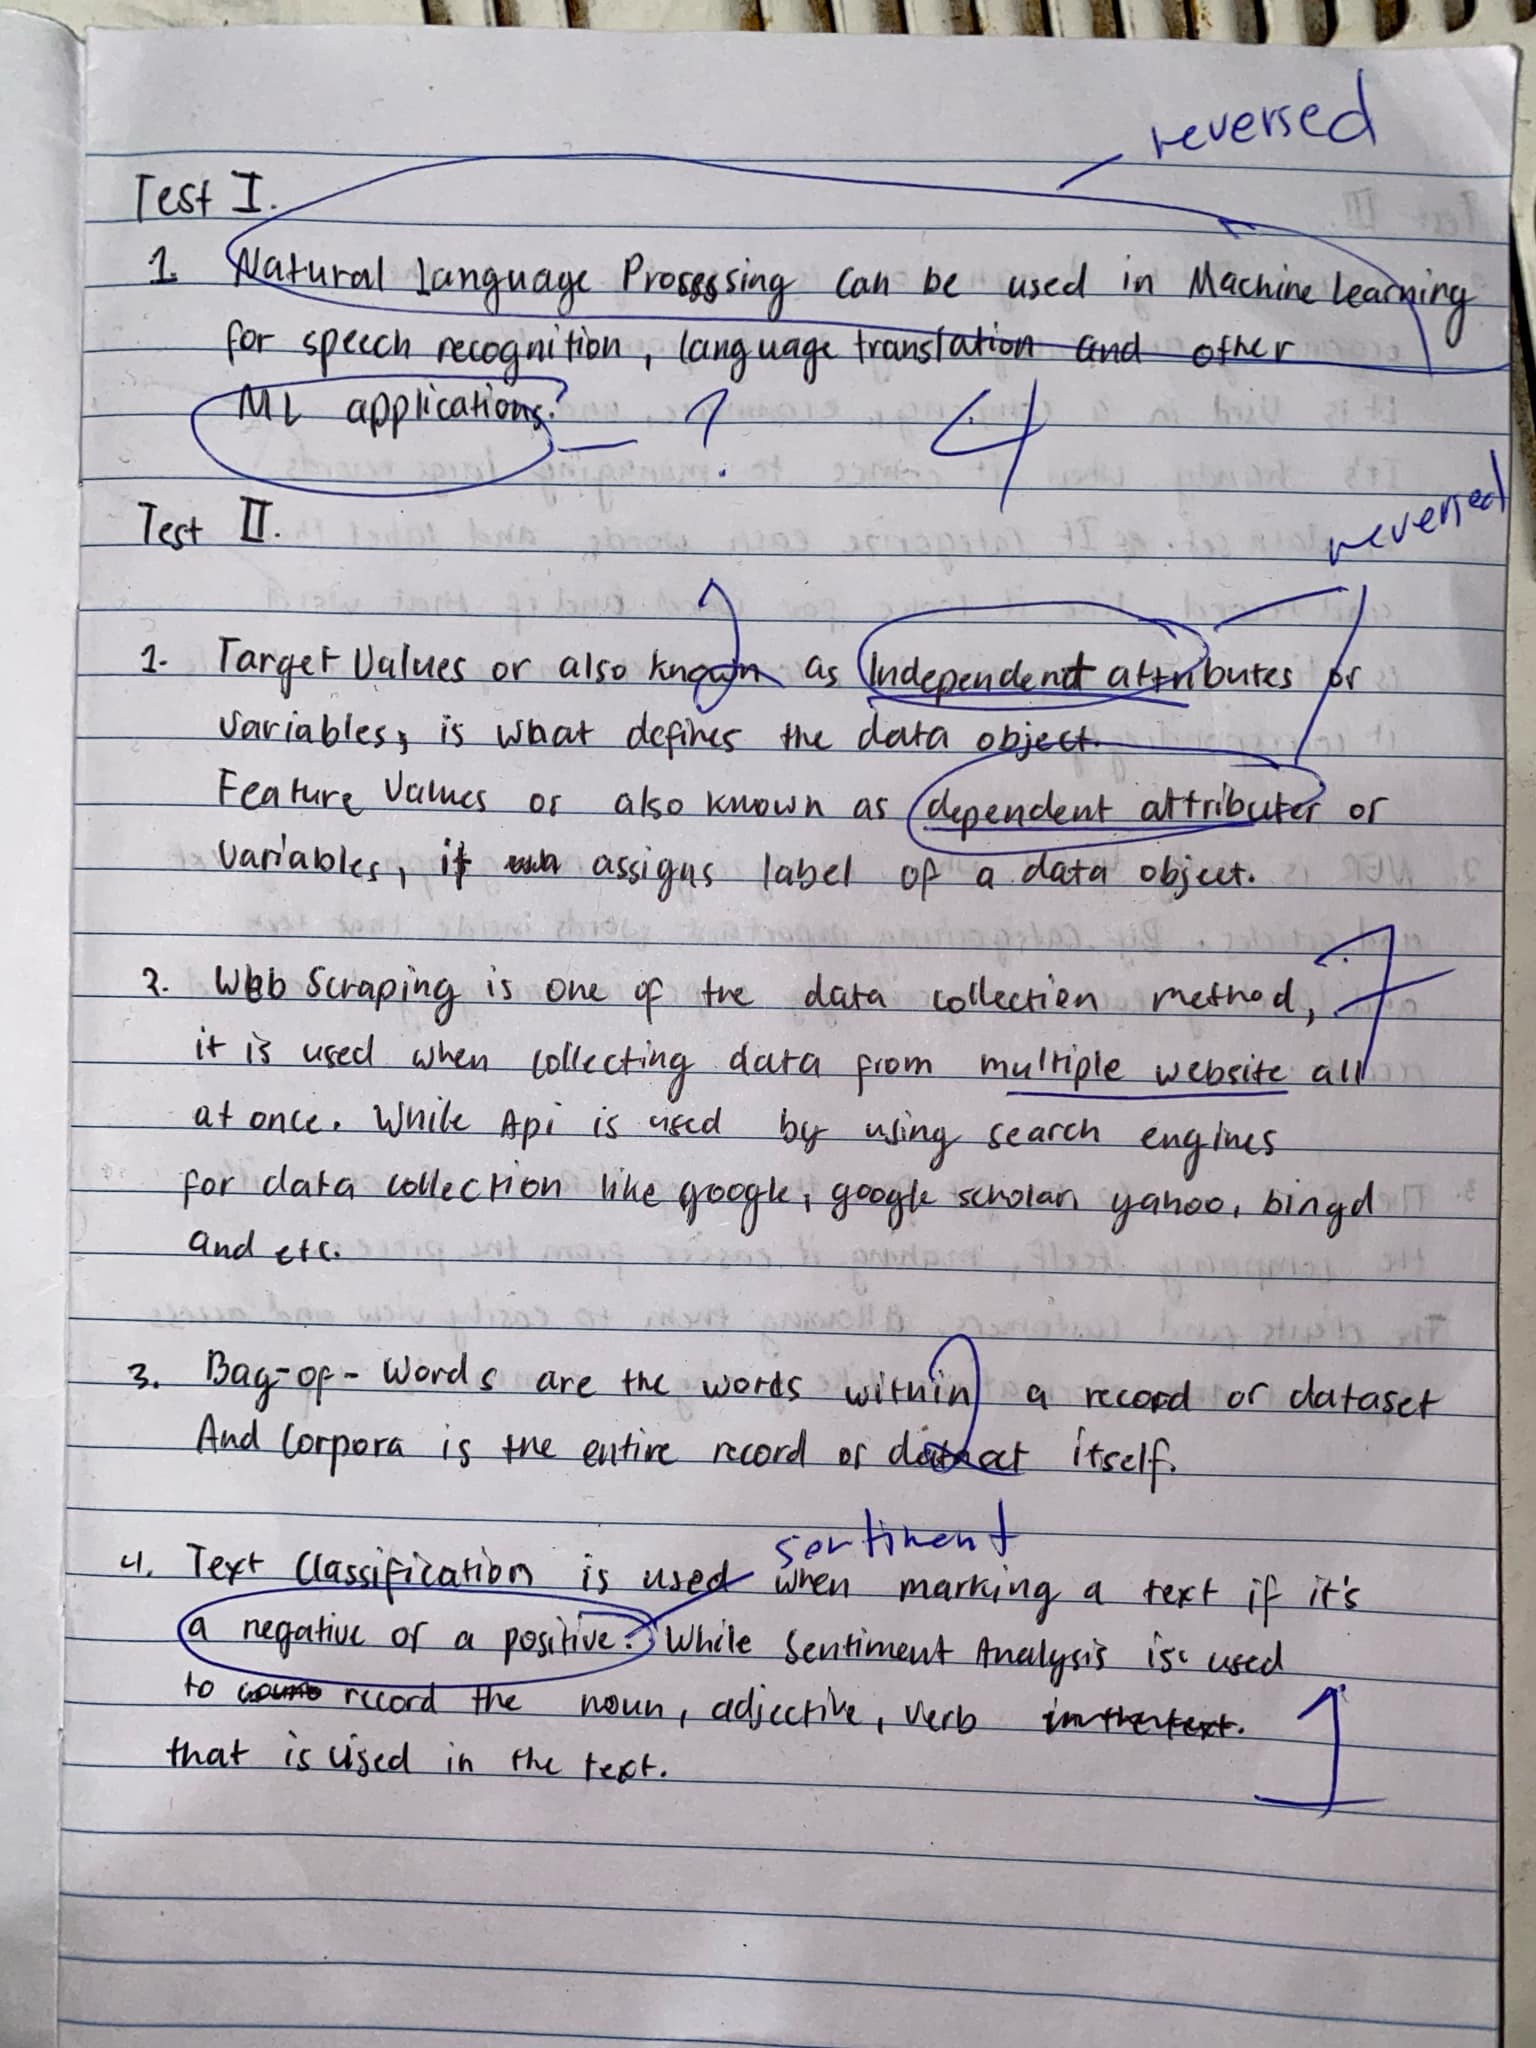 reversed
Test I.
1. Natural Language Prosessing can be used in Machine Learning
for speech recognition, language translation and other
ML applications.
?
4
Test II.
reversed
1. Target Values or also known as Independent attributes or
variables, is what defines the data object.
Feature Values or also known as dependent attributes or
variables, it assigns label of a data object.
7
2. Web Scraping is one of the data collection method,
it is used when collecting data from multiple website all
at once. While Api is used by using search engines
for data collection like google, google scholar, yahoo, bingd
and etc.
3. Bag-of-Words are the words within a record or dataset
And Corpora is the entire record or itself.
sentiment
4. Text Classification is used when marking a text if it's
a negative or a positive. While Sentiment Analysis is used
to record the noun, adjective, verb in the text.
that is used in the text.
1